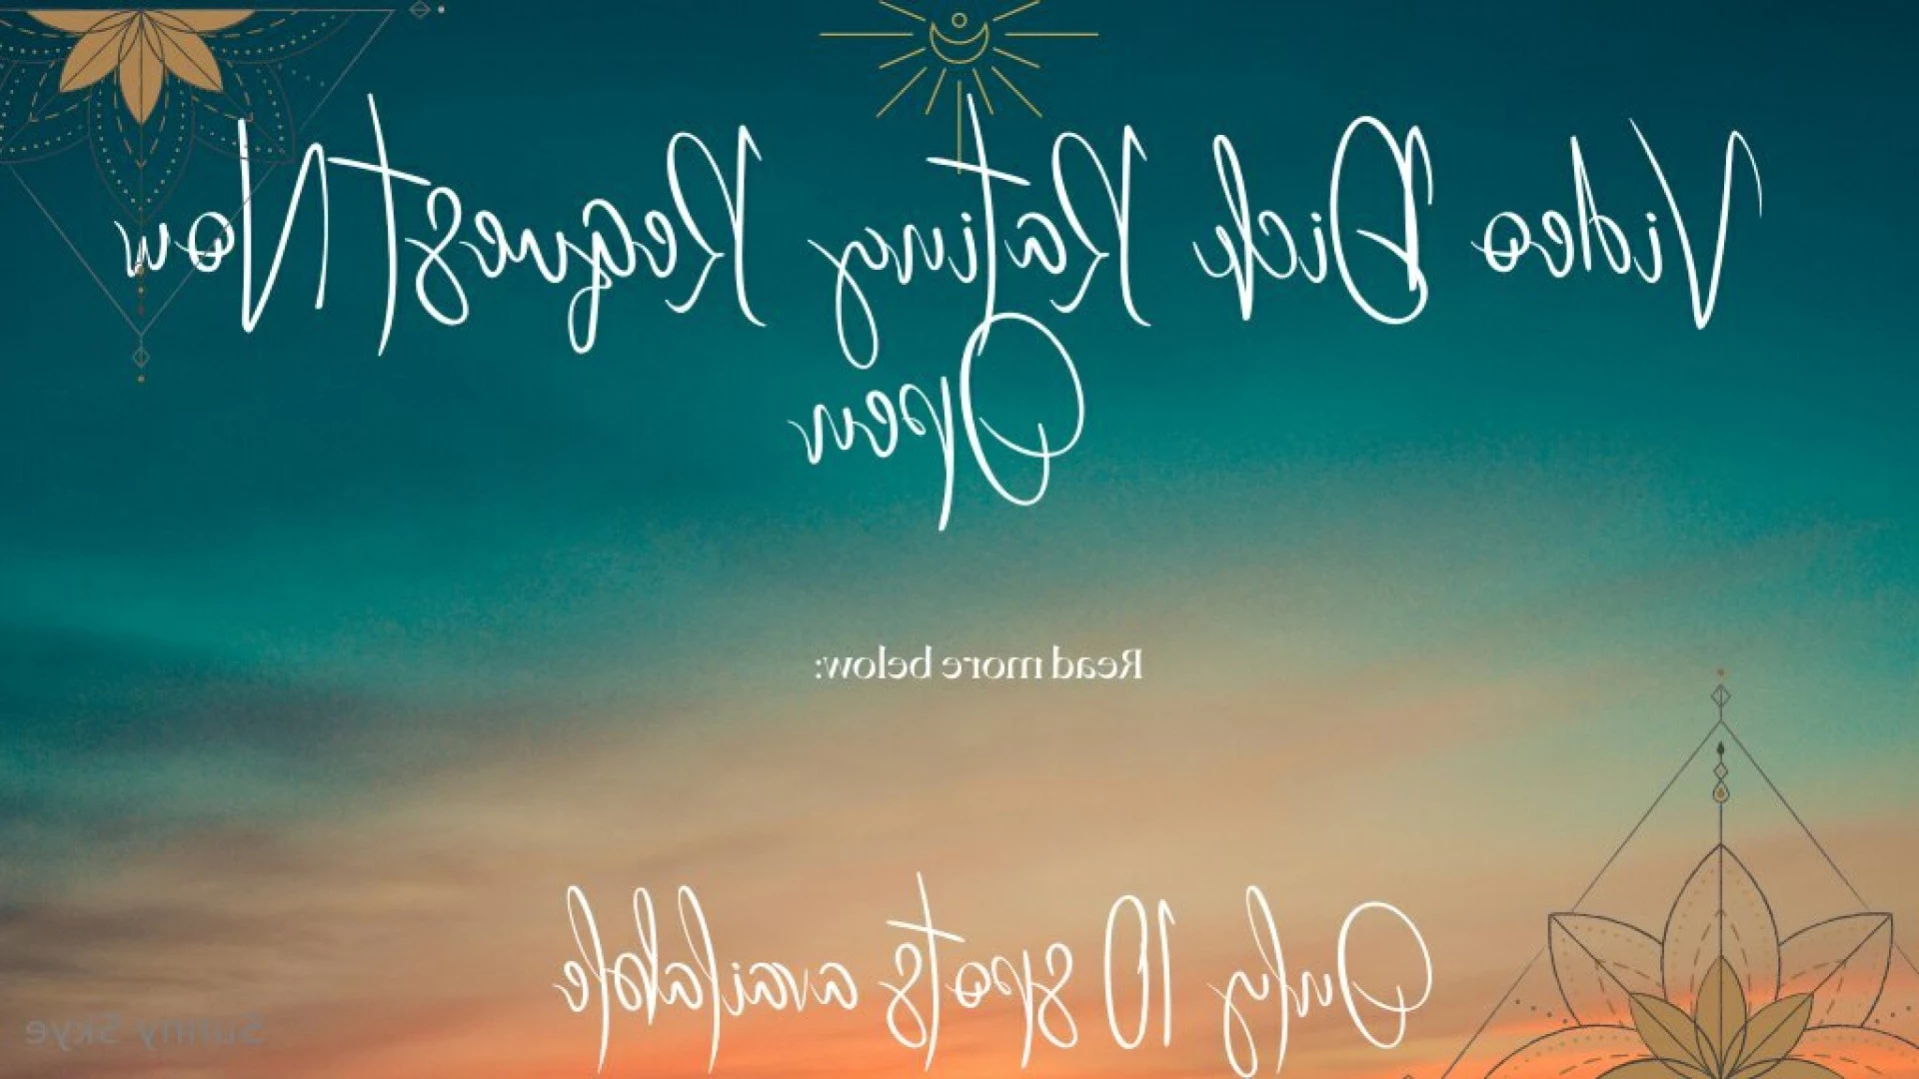 Video Dick Rating Request Now
Open
Read more below:
Only 10 spots available
Sunny Skye